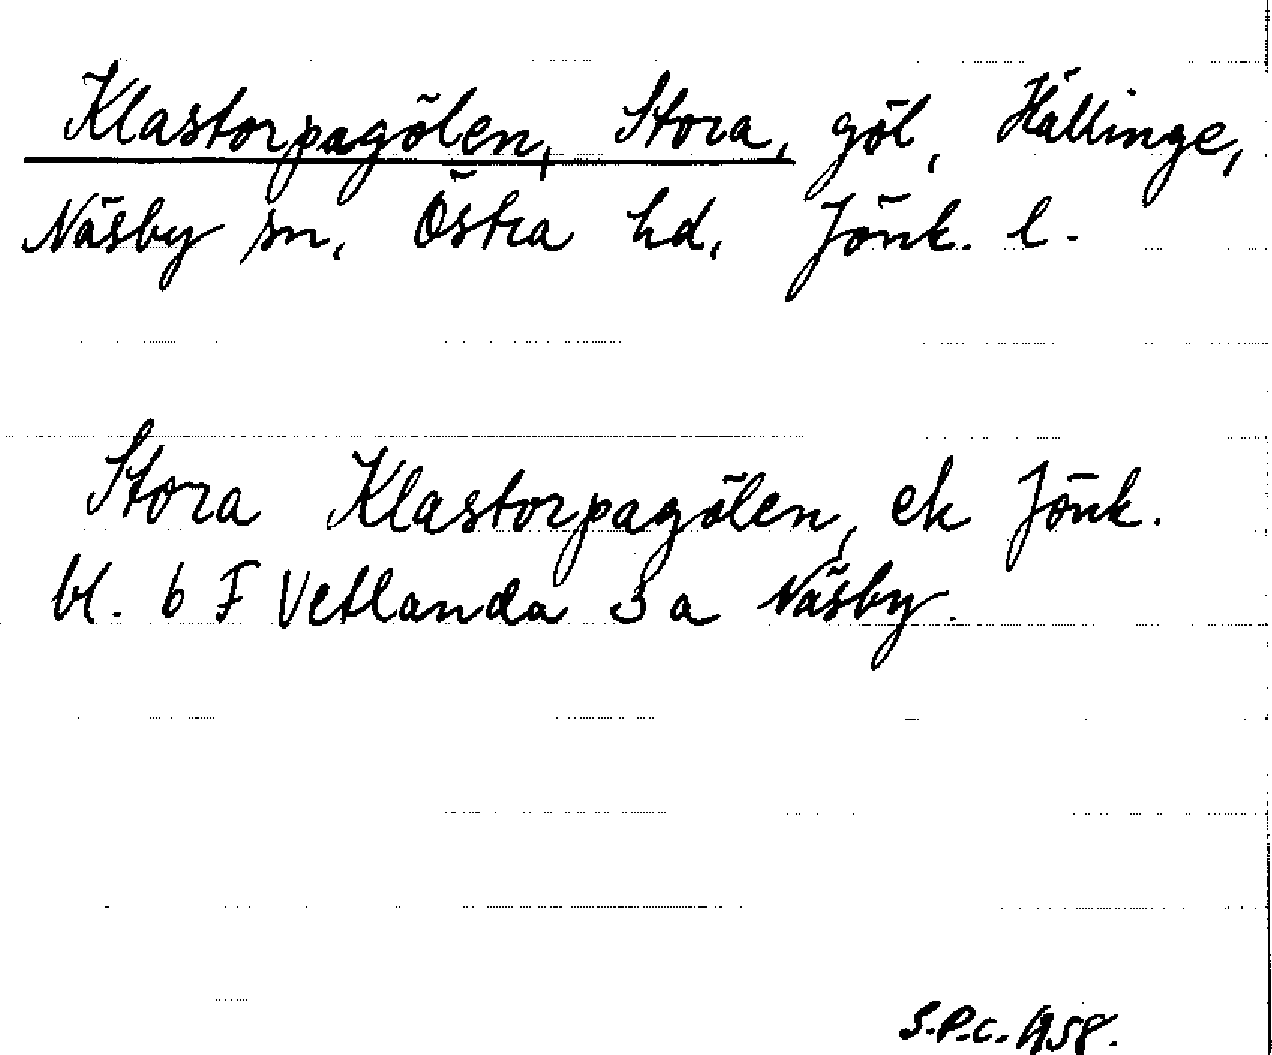 Klastorpagölen, Stora, göl, Hällinge,
Näsby sn, Östra hd, Jönk. l.
Stora Klastorpagölen, ek Jönk.
bl. 6 F Vetlanda 3 a Näsby.
S.P.C. 1958.